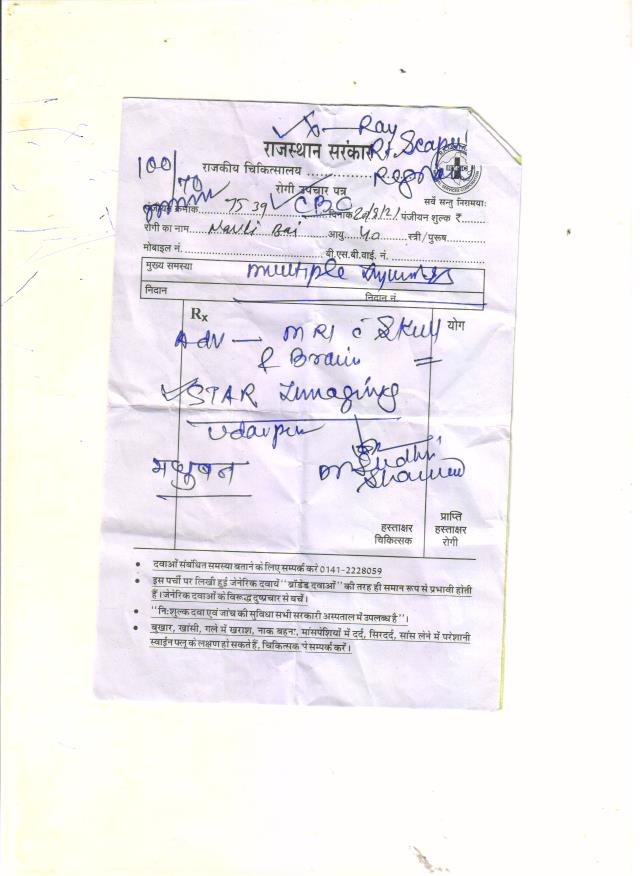 X-Ray
राजस्थान सरकार
Rt Scapul
Region
100/70 mmm
राजकीय चिकित्सालय ..................
रोगी उपचार पत्र
CBC
सर्वे सन्तु निरामयाः
पंजीयन क्रमांक 7539 दिनांक 20/8/21 पंजीयन शुल्क ₹
रोगी का नाम Navli Bai आयु 40 स्त्री/पुरूष
मोबाइल नं. बी.एस.बी.वाई. नं.
मुख्य समस्या multiple
निदान निदान नं.
Rx योग
Adv — MRI c Skull
& Brain
STAR Imaging
Udaipur
मधुबन
Dr Sudhir
Sharma
हस्ताक्षर चिकित्सक
प्राप्ति हस्ताक्षर रोगी
• दवाओं संबंधित समस्या बताने के लिए सम्पर्क करें 0141-2228059
• इस पर्ची पर लिखी हुई जेनेरिक दवायें "ब्रांडेड दवाओं" की तरह ही समान रूप से प्रभावी होती
हैं। जेनेरिक दवाओं के विरूद्ध दुष्प्रचार से बचें।
• "निःशुल्क दवा एवं जांच की सुविधा सभी सरकारी अस्पताल में उपलब्ध है"।
• बुखार, खांसी, गले में खराश, नाक बहना, मांसपेशियों में दर्द, सिरदर्द, सांस लेने में परेशानी
स्वाईन फ्लू के लक्षण हो सकते हैं, चिकित्सक से सम्पर्क करें।